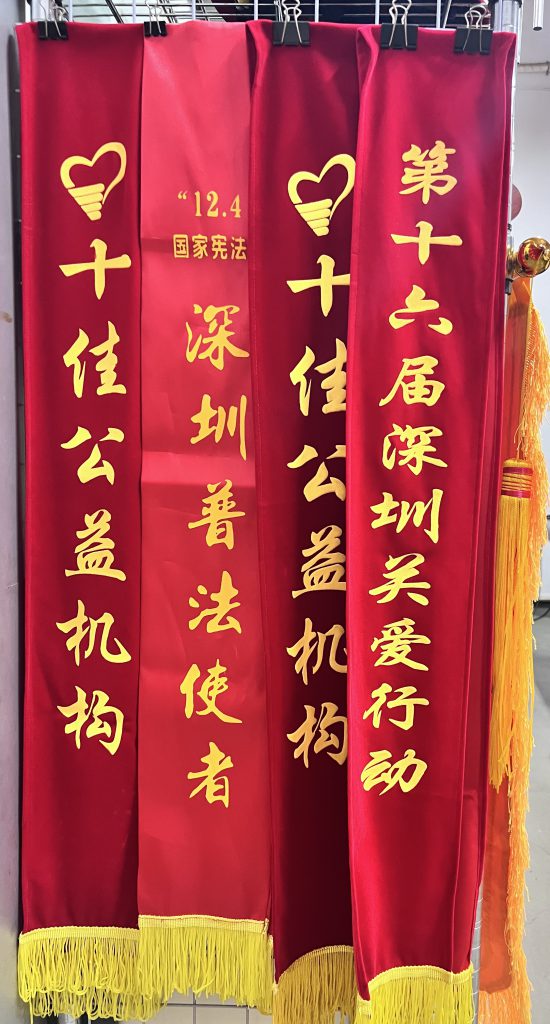 十佳公益机构
“12.4
国家宪法
深圳普法使者
十佳公益机构
第十六届深圳关爱行动